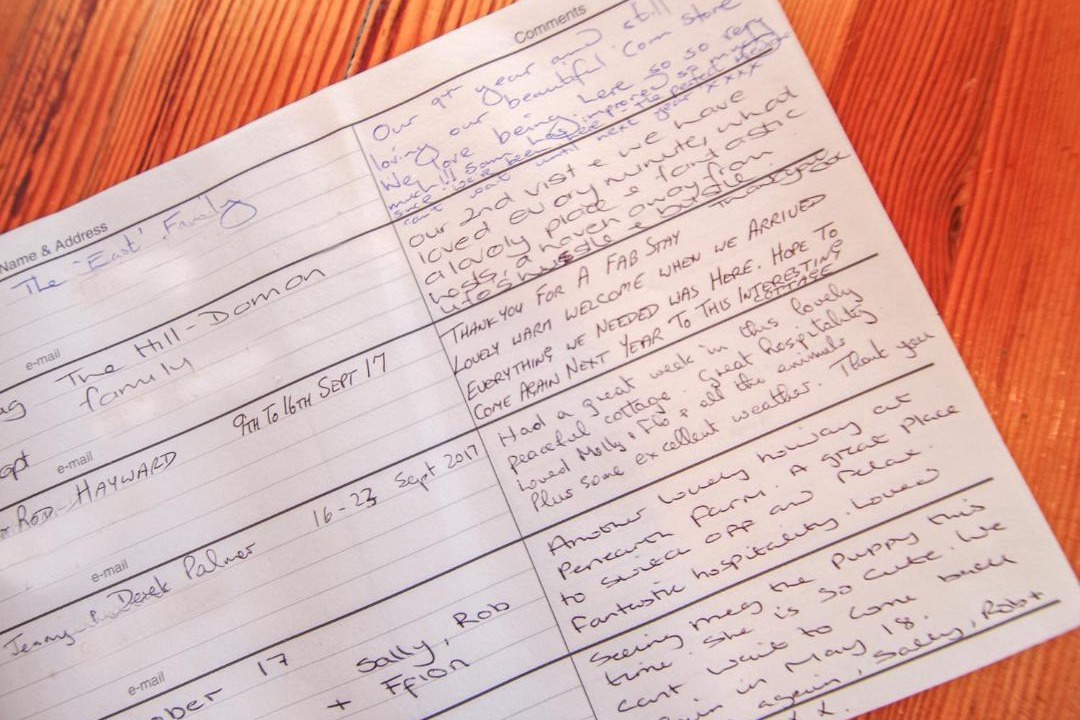 Name & Address
Comments
The 'East' Family
Our 9th year and still
loving our beautiful Corn store
We love being here so so very
much!!! Sam has improved so much
since we've been here - the perfect
can't wait until next year xxxx
e-mail
The Hill-Domon
family
our 2nd visit & we have
loved every minute, what
a lovely place & fantastic
hosts, a haven away from
life's hustle & bustle. Thankyou
e-mail
Rod HAYWARD
9TH To 16TH SEPT 17
THANKYOU FOR A FAB STAY
LOVELY WARM WELCOME WHEN WE ARRIVED
EVERYTHING WE NEEDED WAS HERE. HOPE TO
COME AGAIN NEXT YEAR TO THIS INTERESTING
COTTAGE
e-mail
Jenny Derek Palmer
16-23 Sept 2017
Had a great week in this lovely
peaceful cottage. Great hospitality
Loved Molly, Flo & all the animals
Plus some excellent weather. Thank you
e-mail
ober 17
Sally, Rob
+ Ffion
Another lovely holiday at
Penrarth Farm. A great place
to switch off and relax.
Fantastic hospitality. Loved
Seeing meg the puppy this
time. She is so cute. We
cant wait to come back
again in May 18.
again, Sally, Rob +
x x.